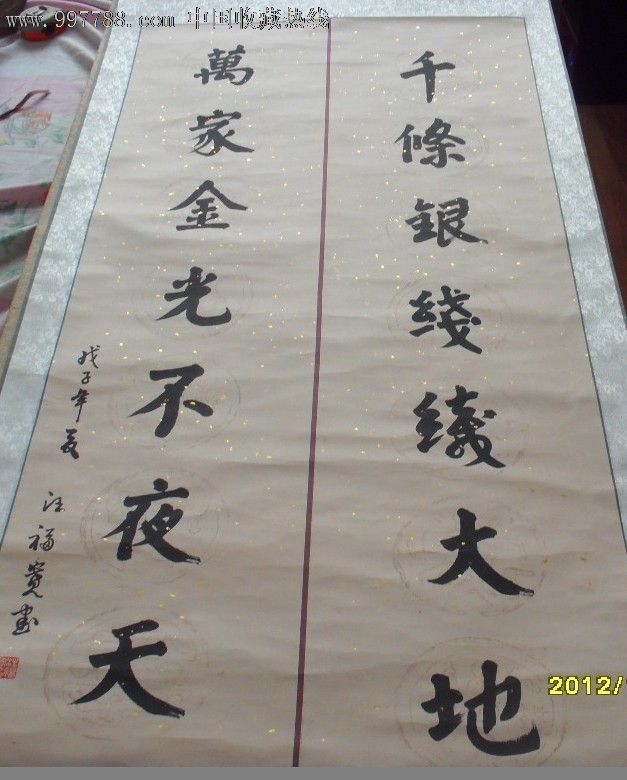 www.997788.com 中国收藏热线
千條銀綫織大地
萬家金光不夜天
戊子年夏 汪福寬書
2012/